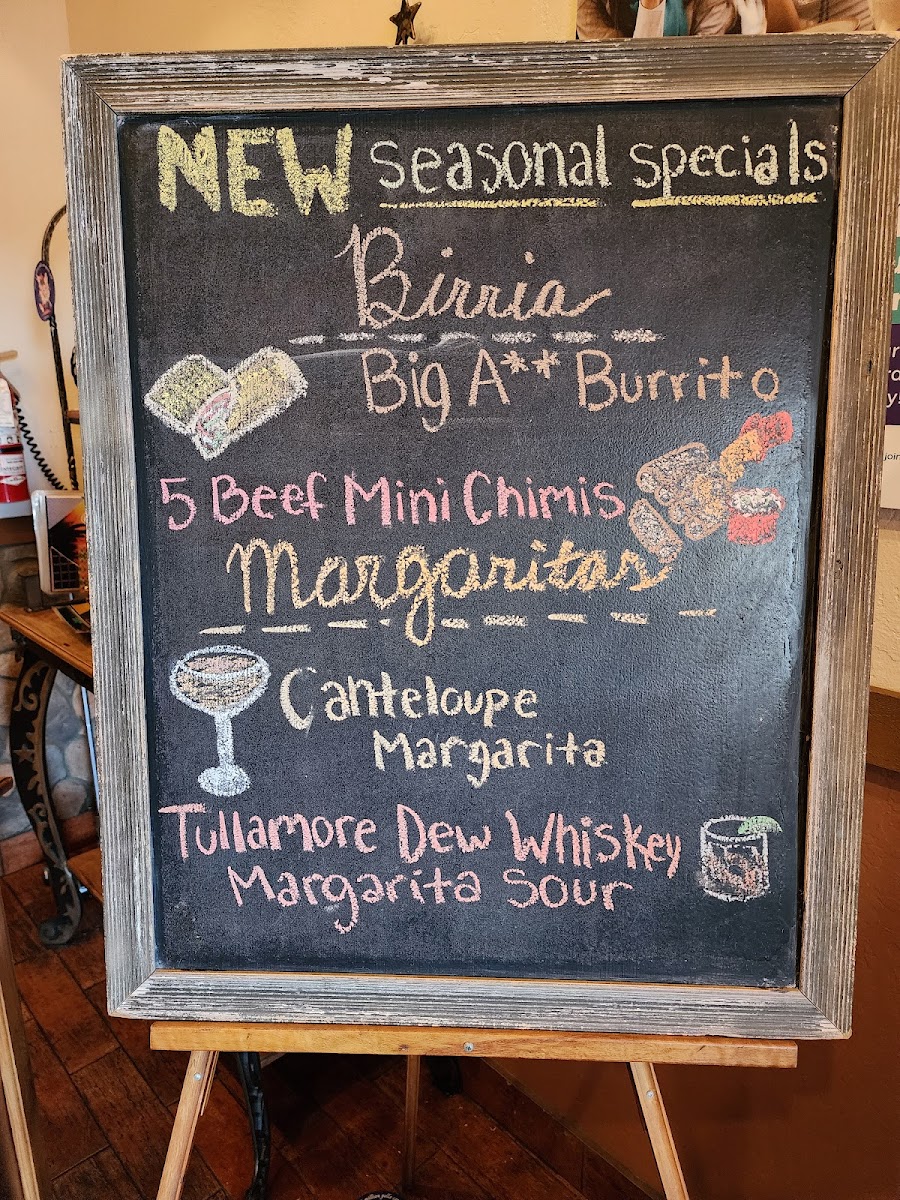 NEW seasonal specials
Birria
Big A** Burrito
5 Beef Mini Chimis
Margaritas
Canteloupe
Margarita
Tullamore Dew Whiskey
Margarita Sour